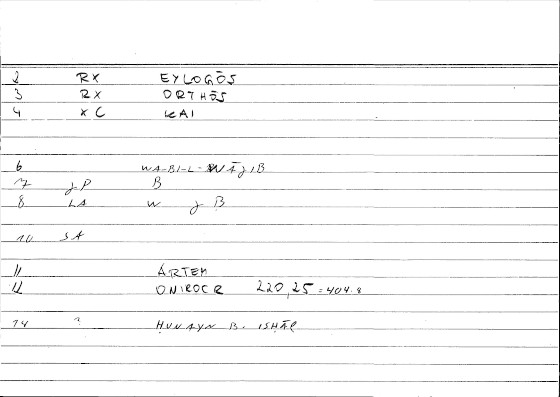 2 RX EYLOGŌS
3 RX ORTHŌS
4 XC KAI
6 WA-BI-L-WĀǧIB
7 ǧP B
8 LA W ǧ B
10 SA
11 ARTEM
12 ONIROCR 220,25 = 404.8
14 ? HUNAYN B. ISHĀQ